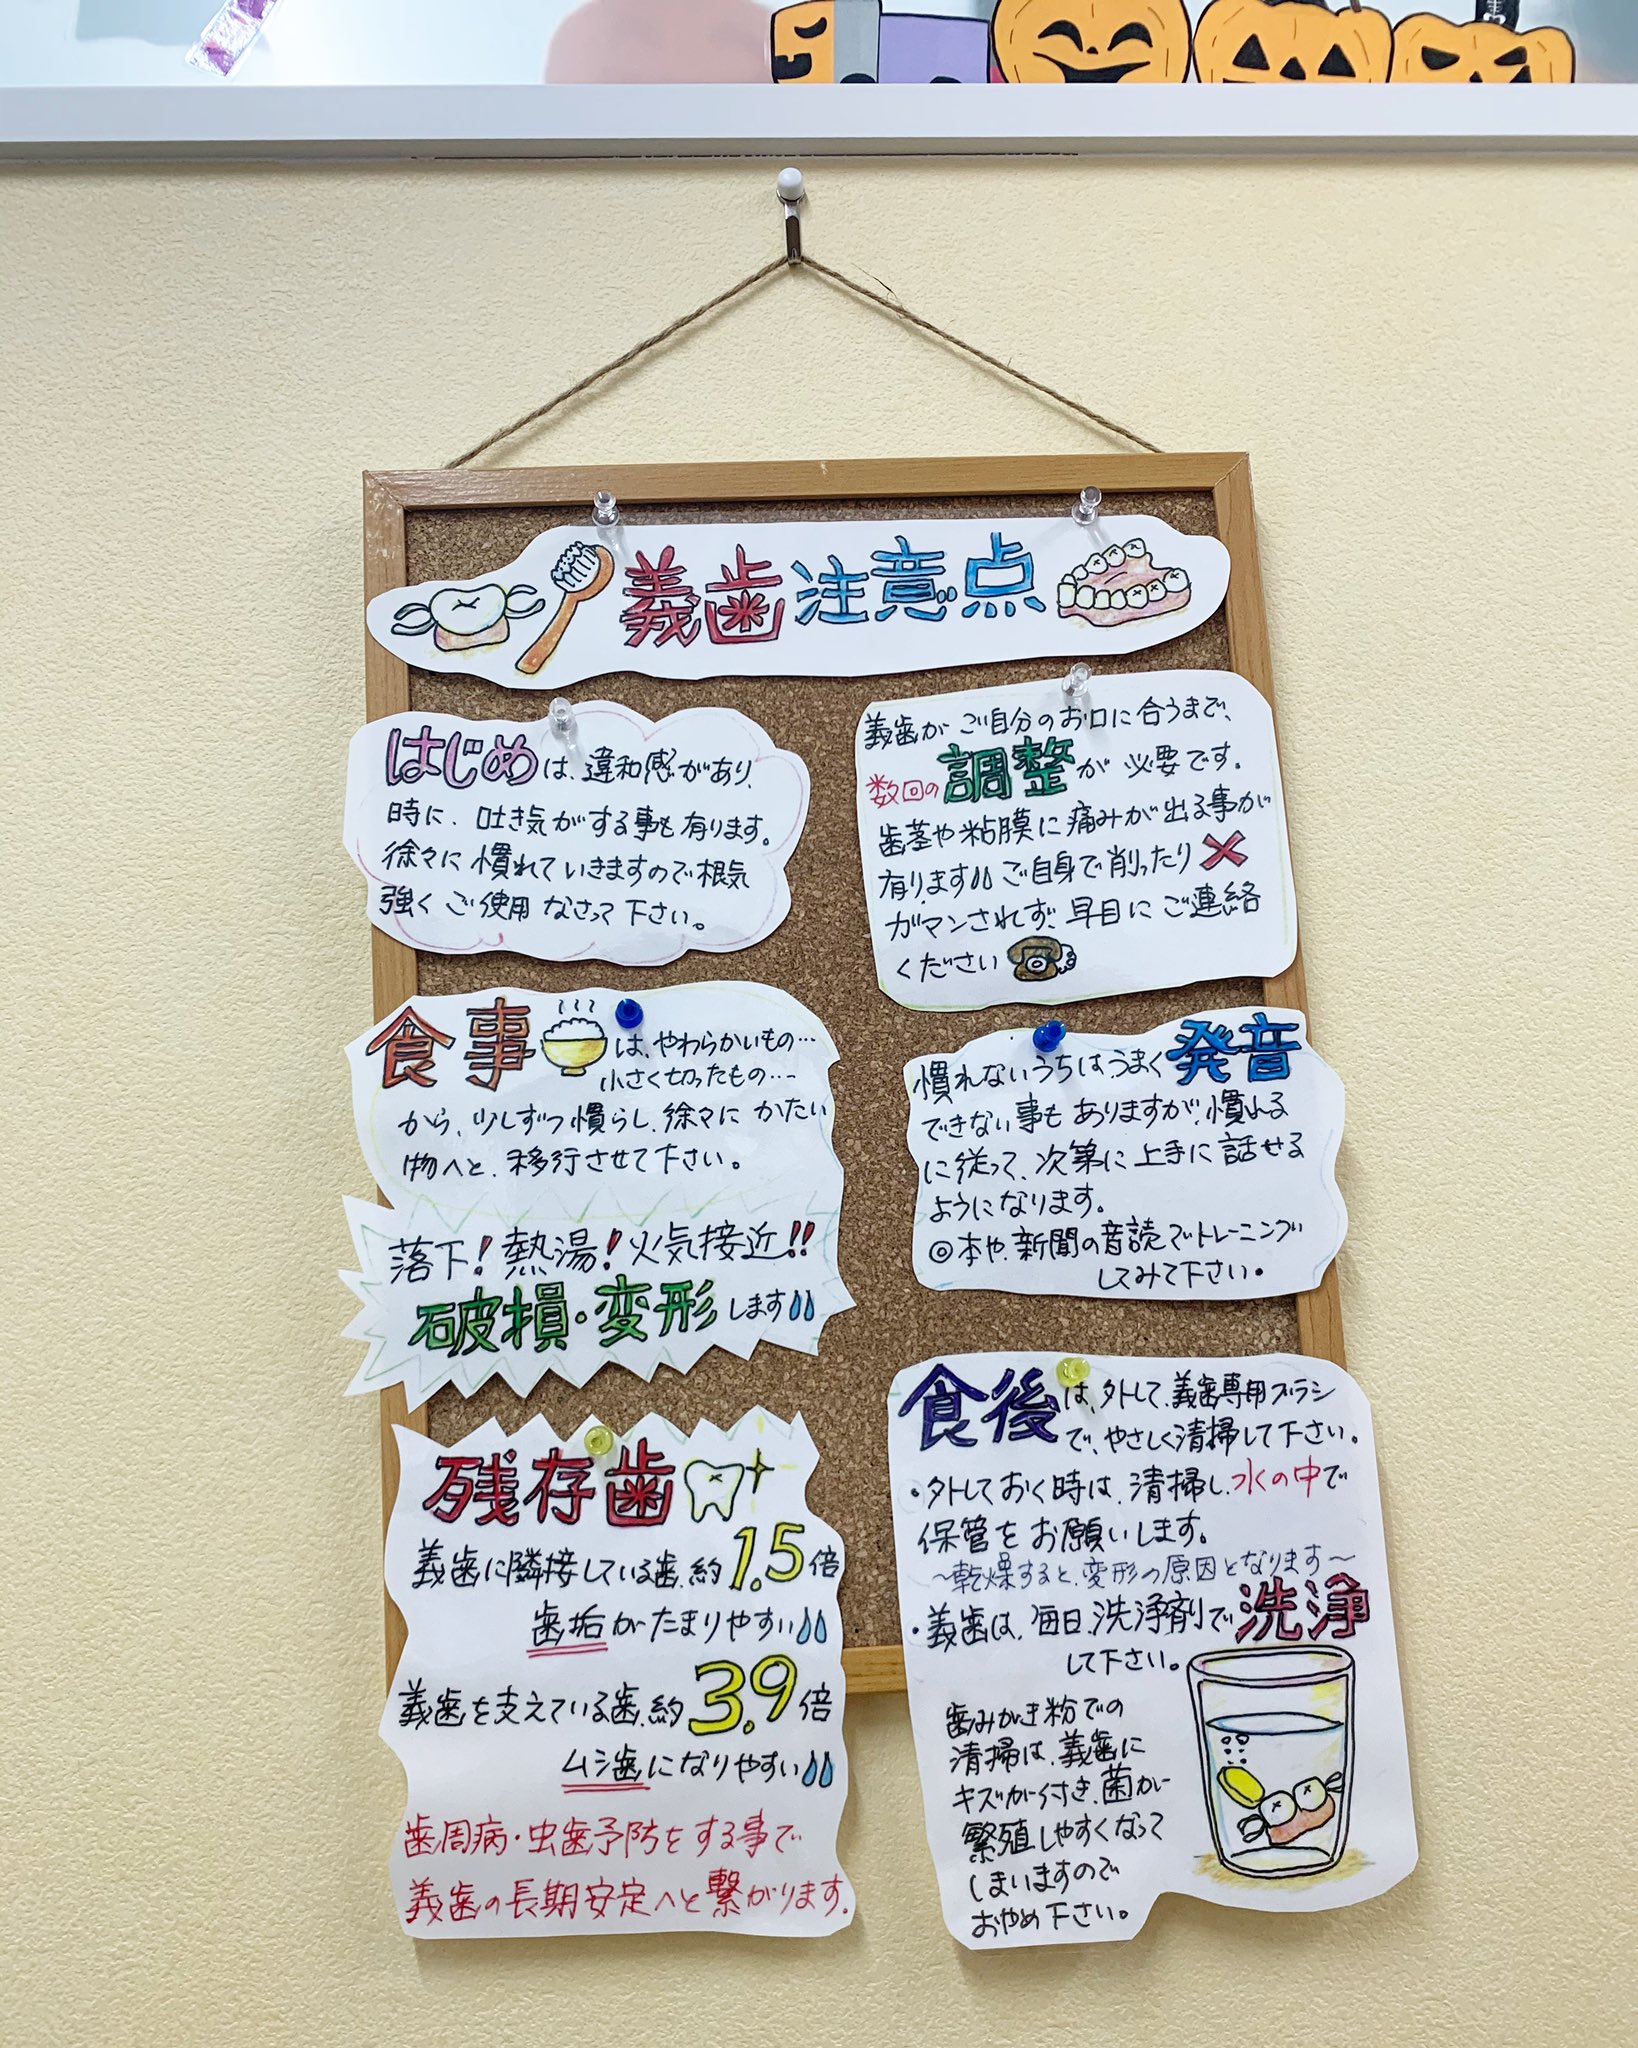 義歯注意点
はじめは、違和感があり、
時に、吐き気がする事も有ります。
徐々に慣れていきますので根気
強くご使用なさって下さい。
義歯がご自分のお口に合うまで、
数回の調整が必要です。
歯茎や粘膜に痛みが出る事が
有ります ご自身で削ったり
ガマンされず、早目にご連絡
ください
食事は、やわらかいもの…
小さく切ったもの…
から、少しずつ慣らし、徐々にかたい
物へと、移行させて下さい。
慣れないうちは、うまく発音
できない事もありますが、慣れる
に従って、次第に上手に話せる
ようになります。
◎本や、新聞の音読でトレーニング
してみて下さい。
落下!熱湯!火気接近!!
破損・変形します
残存歯
義歯に隣接している歯、約1.5倍
歯垢がたまりやすい
義歯を支えている歯、約3.9倍
ムシ歯になりやすい
歯周病・虫歯予防をする事で
義歯の長期安定へと繋がります。
食後は、外して、義歯専用ブラシ
で、やさしく清掃して下さい。
・外しておく時は、清掃し、水の中で
保管をお願いします。
〜乾燥すると、変形の原因となります〜
・義歯は、毎日、洗浄剤で洗浄
して下さい。
歯みがき粉での
清掃は、義歯に
キズが付き、菌が
繁殖しやすくなって
しまいますので
おやめ下さい。